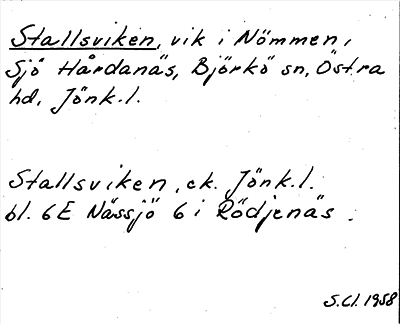 Stallsviken, vik i Nömmen,
Sjö Hårdanäs, Björkö sn, Östra
hd, Jönk.l.
Stallsviken, ek. Jönk.l.
bl. 6E Nässjö 6 i Rödjenäs.
S.Cl. 1958